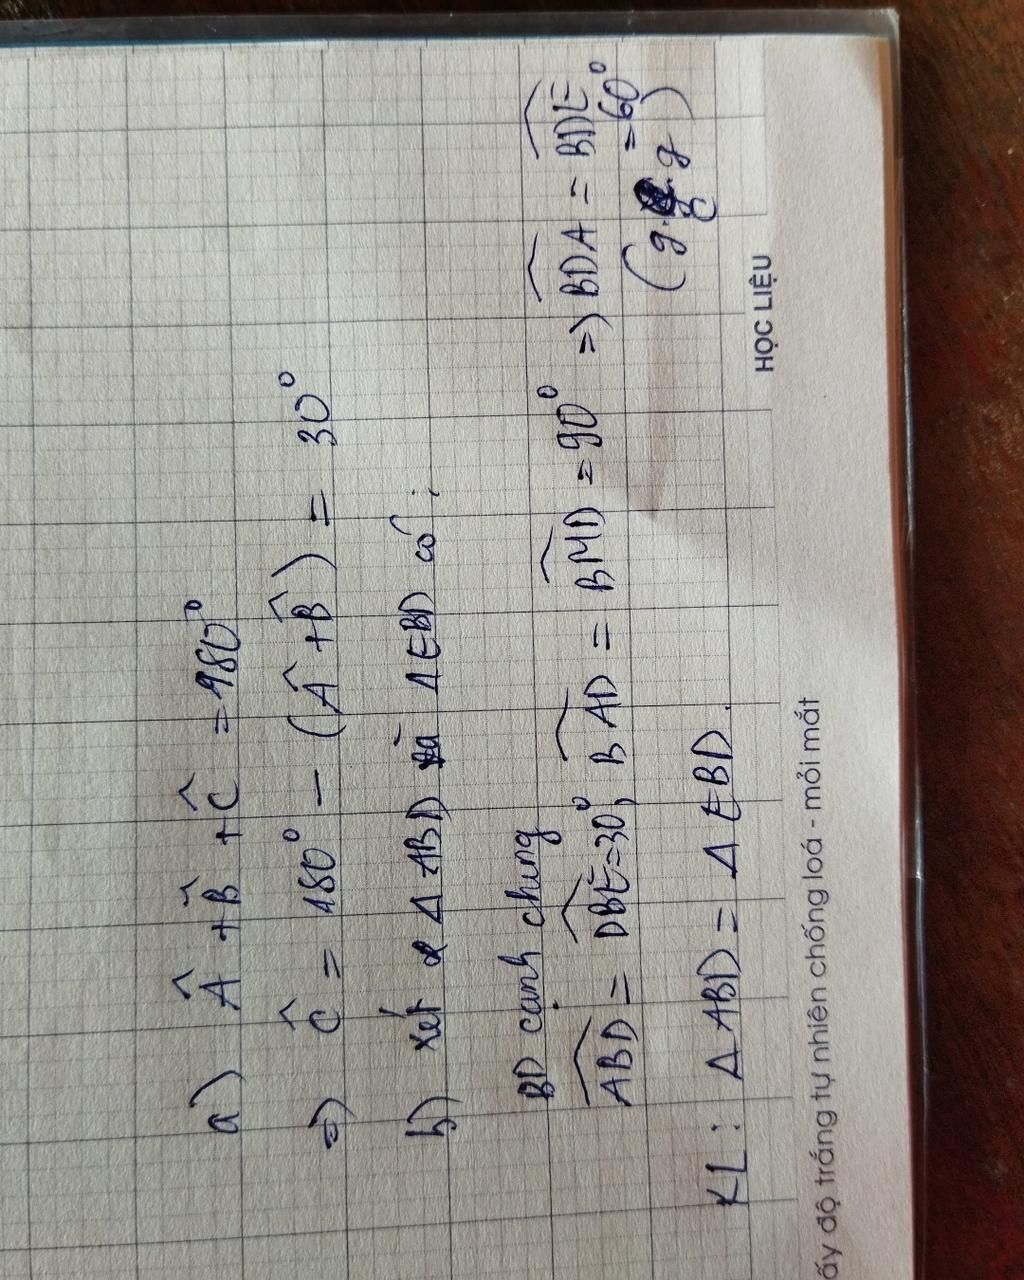 a) Â + B̂ + Ĉ = 180°
=) Ĉ = 180° - (Â + B̂) = 30°
b) Xét 2 Δ ABD và Δ EBD có :
BD cạnh chung
ABD = DBE = 30°, BAD = BMD = 90° =) BDA = BDE
= 60°
(g.c.g)
KL : Δ ABD = Δ EBD.
HỌC LIỆU
ấy độ trắng tự nhiên chống loá - mỏi mắt